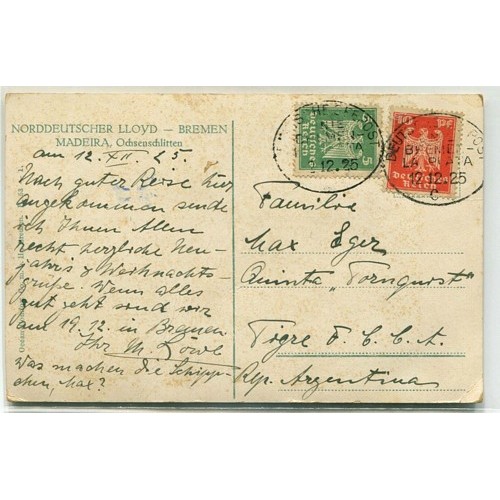 NORDDEUTSCHER LLOYD — BREMEN
MADEIRA, Ochsenschlitten
am 12. XII. 25.
Nach guter Reise hier
angekommen sende
ich Ihnen Allen
recht herzliche Neu-
jahrs & Weihnachts-
grüße. Wenn alles
gut geht sind wir
am 19.12. in Bremen
Ihr M. Löwe
Was machen die Schipp-
chen, Max?
Familie
Max Eger
Quinta "Tornquist"
Tigre F. C. C. A.
Rep. Argentina
5
Deutsches
Reich
12.25
10 Pf
Deutsches
Reich
12.12.25